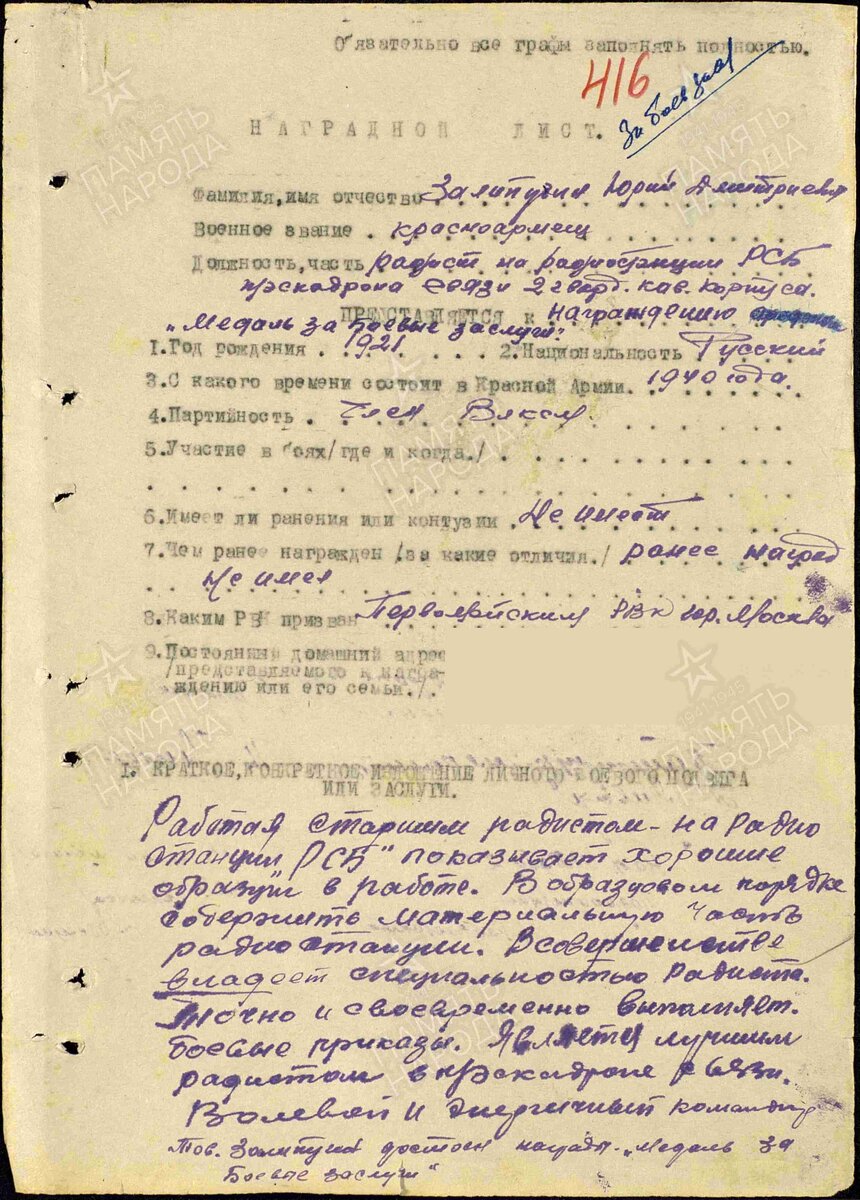 Обязательно все графы заполнять полностью.
416
За боев засл
НАГРАДНОЙ ЛИСТ.
Фамилия, имя отчество Залипугин Юрий Дмитриевич
Военное звание . красноармеец
Должность, часть радист на радиостанции РСБ
п/эскадрона связи 2 гвард. кав. корпуса.
ПРЕДСТАВЛЯЕТСЯ к награждению
"Медаль за Боевые заслуги".
1.Год рождения . 1921 . . . . 2.Национальность Русский
3.С какого времени состоит в Красной Армии. 1940 года.
4.Партийность . Член ВЛКСМ.
5.Участие в боях/где и когда./ . . . . . . . .
6.Имеет ли ранения или контузии . Не имеет
7.Чем ранее награжден /за какие отличия./ ранее наград
не имел
8.Каким РВК призван Первомайским РВК гор. Москва
9.Постоянный домашний адрес
/представляемого к награ-
ждению или его семьи./.
I. КРАТКОЕ, КОНКРЕТНОЕ ИЗЛОЖЕНИЕ ЛИЧНОГО БОЕВОГО ПОДВИГА
ИЛИ ЗАСЛУГИ.
Работая старшим радистом - на радио
станции РСБ" показывает хорошие
образцы в работе. В образцовом порядке
содержить материальную часть
радиостанции. В совершенстве
владеет специальностью радиста.
Точно и своевременно выполняет.
боевые приказы. Является лучшим
радистом в п/эскадроне связи.
Волевой и энергичный командир
Тов. Залипугин достоин награды - "Медаль за
Боевые заслуги"
ПАМЯТЬ
НАРОДА
1941-1945